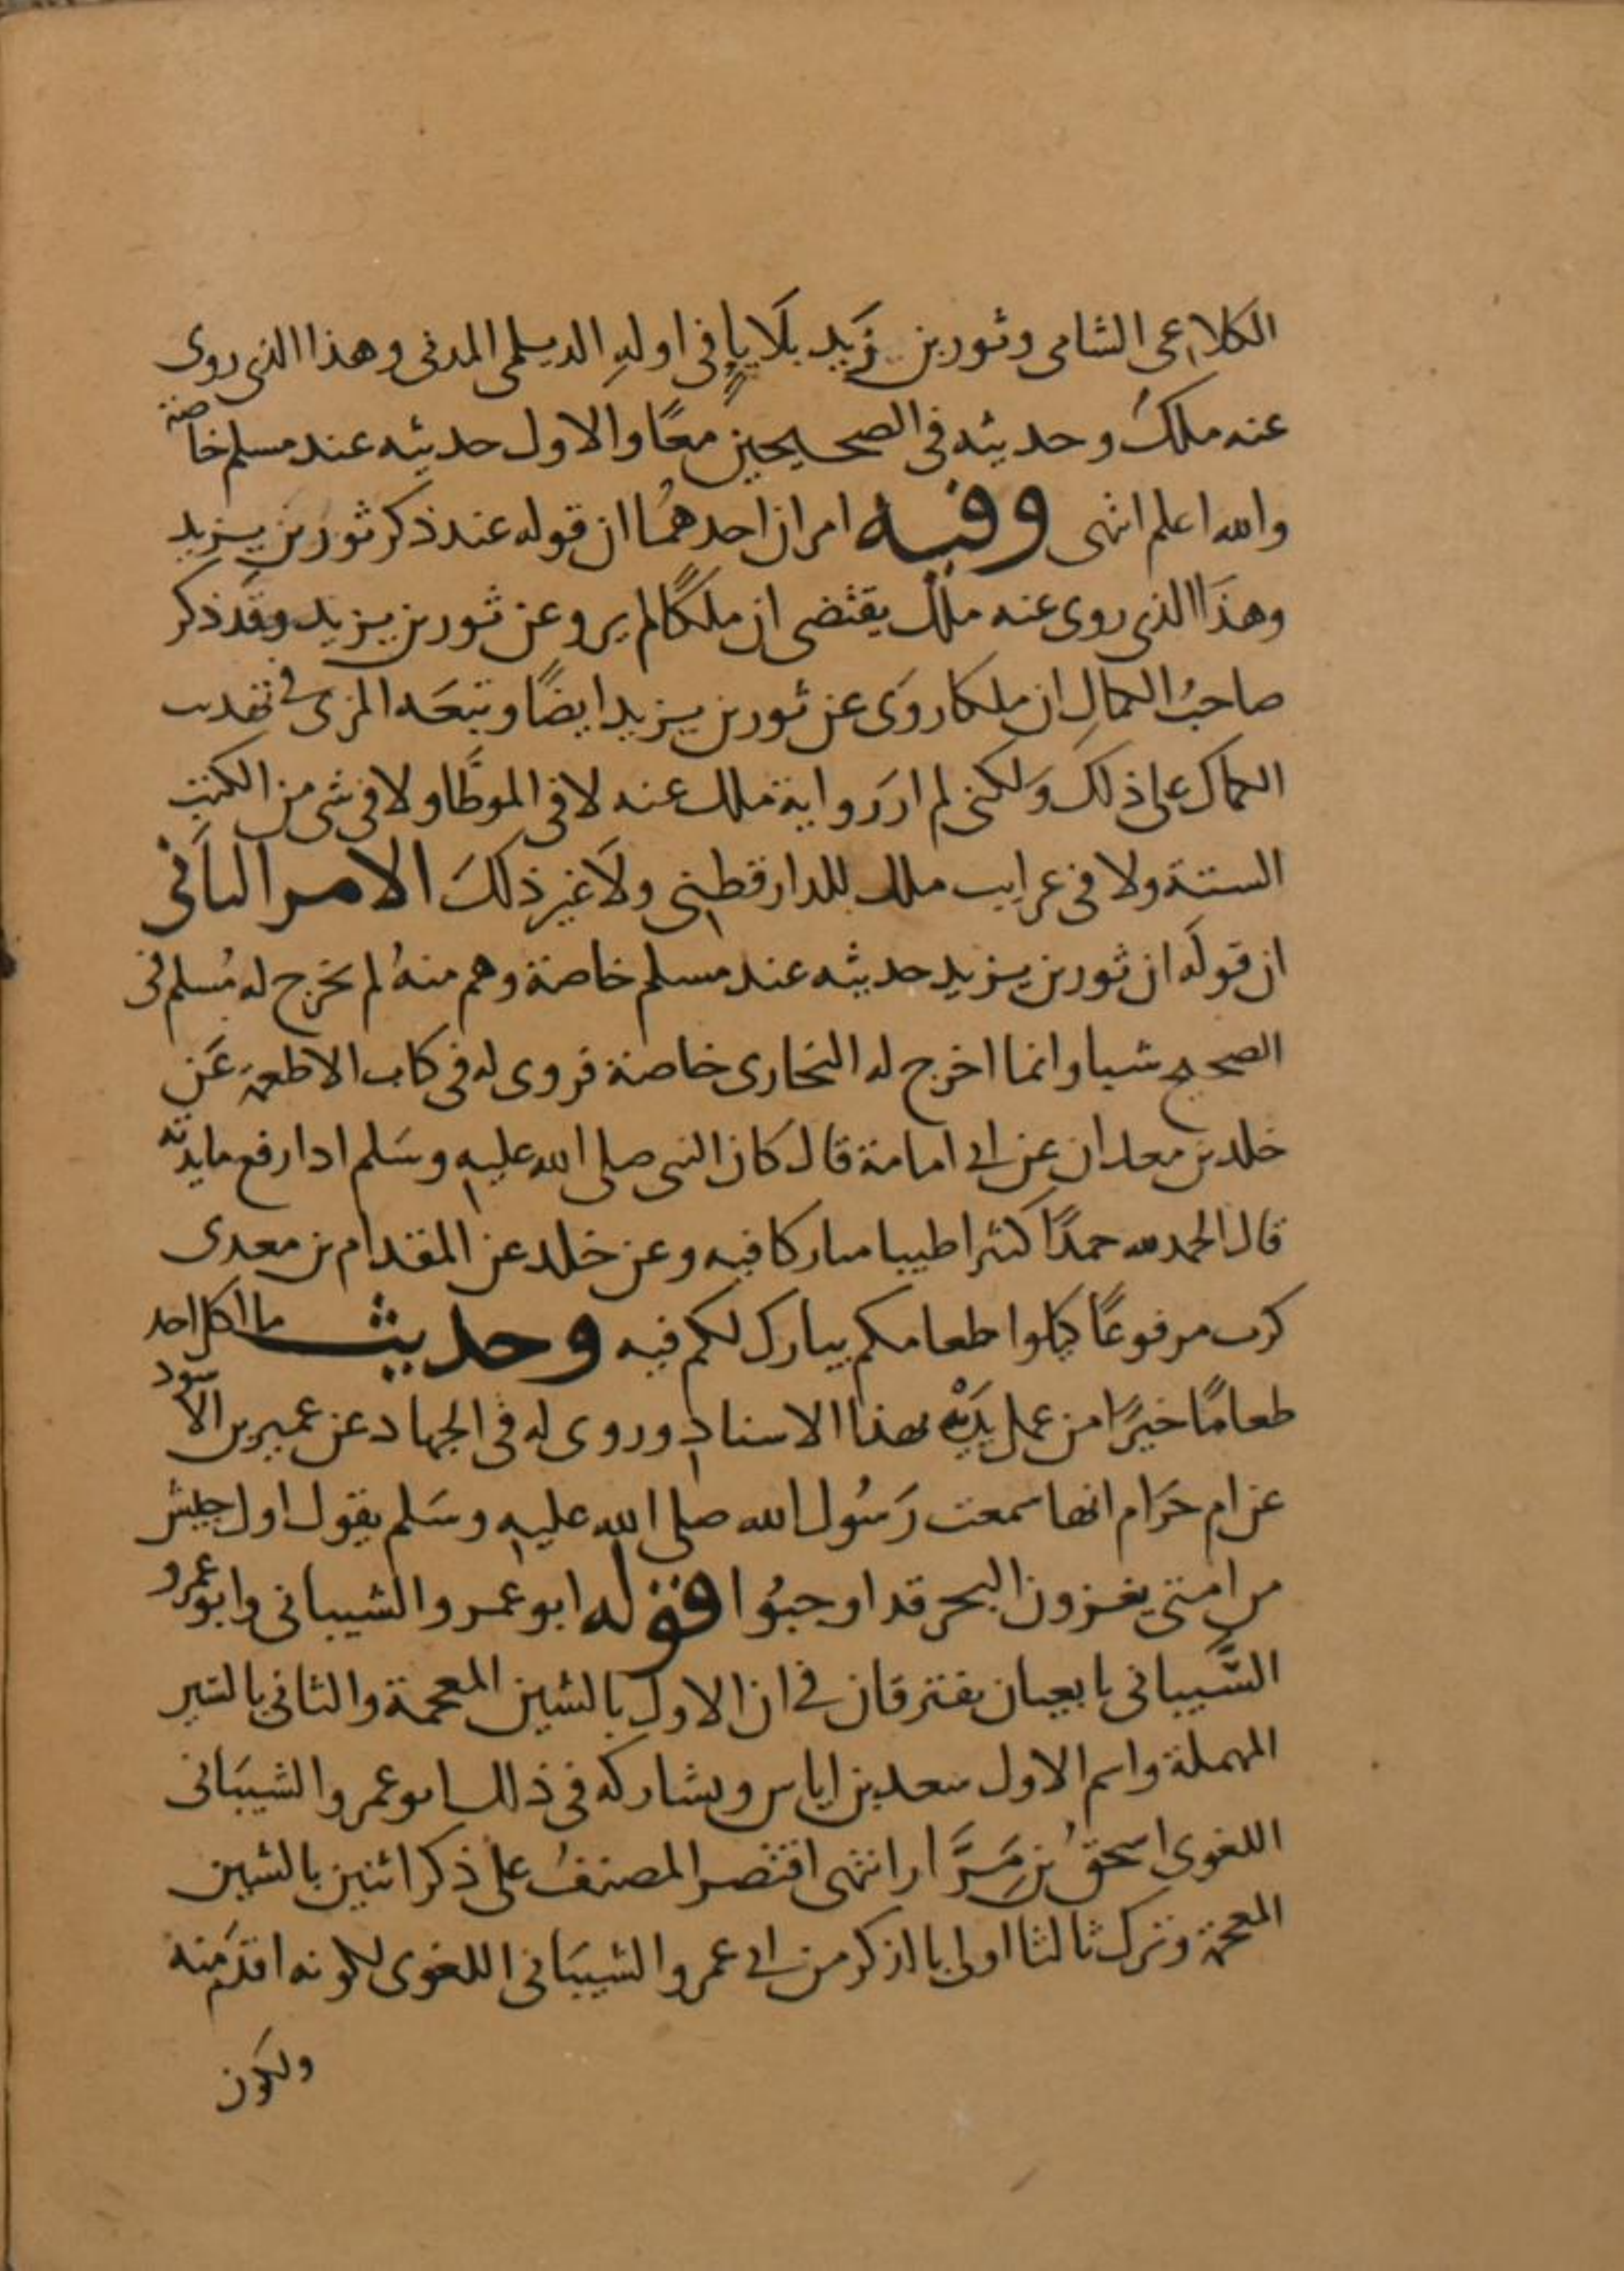 الكلاعى الشامى وثور بن زَيد بلَا ياءٍ فى اولهِ الديلمى المدنى وهذا الذى روى
عنه ملكٌ وحديثه فى الصحيحين معًا والاول حديثه عند مسلم خاصة
والله اعلم انتهى وفيه امران احدهمُا ان قوله عند ذكر ثور بن يزيد
وهذَا الذى روى عنه ملك يقتضى ان ملكًا لم يرو عن ثور بن يزيد وقَد ذكر
صاحبُ الكمالِ ان ملكا روَى عن ثور بن يزيد ايضًا وتبعَه المزى فى تهذيب
الكمال على ذلك وَلكنى لم ارَ رواية ملك عنه لا فى الموطَّا ولا فى شى من الكتب
الستة ولا فى غرايب ملك للدارقطنى ولَا غير ذلكَ الامر الثانى
ان قولَه ان ثور بن يزيد حديثه عند مسلم خاصة وهم منهُ لم يخرج له مُسلم فى
الصحيح شيا وانما اخرج له البخارى خاصة فروى له فى كتاب الاطعمة عَن
خلد بن معدان عن ابى امامة قال كان النبى صلى الله عليه وسَلم اذا رفع مايدته
قال الحمد لله حمدًا كثيرا طيبا مباركا فيه وعن خلد عن المقدام بن معدى
كرب مرفوعًا كيلوا طعامكم يبارك لكم فيه وحديث ما اكل احد
طعامًا خيرًا من عمل يَدِيْه بهذا الاسناد وروى له فى الجهاد عن عمير بن الاسود
عن ام حَرَام انها سمعت رَسُول الله صلى الله عليه وسَلم يقول اول جيش
من امتى يغزون البحر قد اوجبُوا قوله ابو عمرو الشيبانى وابو عمرو
السَّيبانى تابعيان يفترقان فى ان الاول بالشين المعجمة والثانى بالسين
المهملة واسم الاول سعد بن اياس ويشاركه فى ذلك ابو عمرو الشيبَانى
اللغوى اسحقُ بن مِرَّار انتهى اقتصر المصنفُ على ذكر اثنين بالشين
المعجمة وترك ثالثا اولى بالذكر من ابى عمرو الشيبَانى اللغوى لكونه اقدَم منه
ولكون